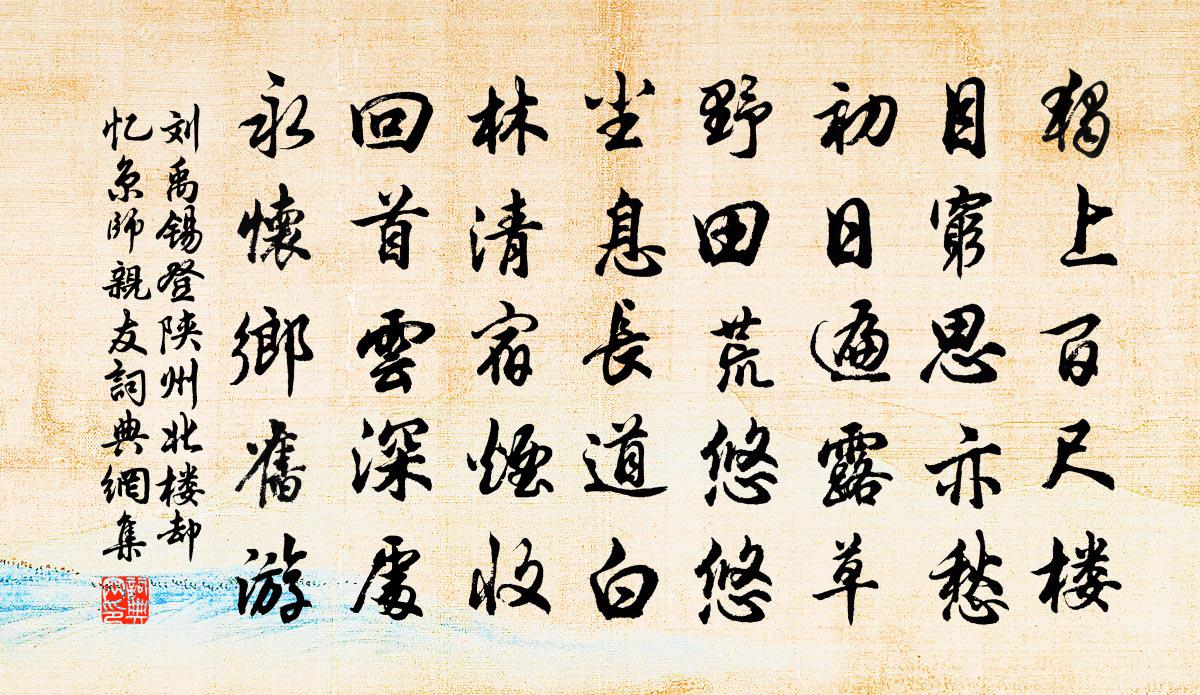 獨上百尺楼
目窮思亦愁
初日遍露草
野田荒悠悠
尘息長道白
林清宿煙收
回首雲深處
永懷鄉舊游
刘禹锡登陕州北楼却
忆京師親友詞典網集